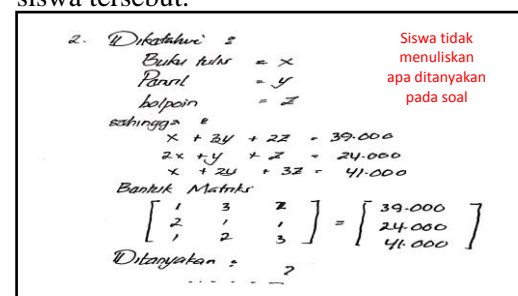 siswa tersebut.
2. Diketahui :
Buku tulis = x
Pensil = y
bolpoin = z
sehingga :
x + 3y + 2z = 39.000
2x + y + z = 24.000
x + 2y + 3z = 41.000
Bentuk Matriks
[ 1 3 2 ] = [ 39.000 ]
[ 2 1 1 ] [ 24.000 ]
[ 1 2 3 ] [ 41.000 ]
Ditanyakan :
. . . . . . ?
Siswa tidak
menuliskan
apa ditanyakan
pada soal